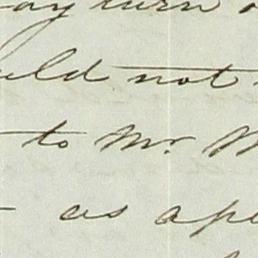 ay turn
uld not
to Mr. M
as ape